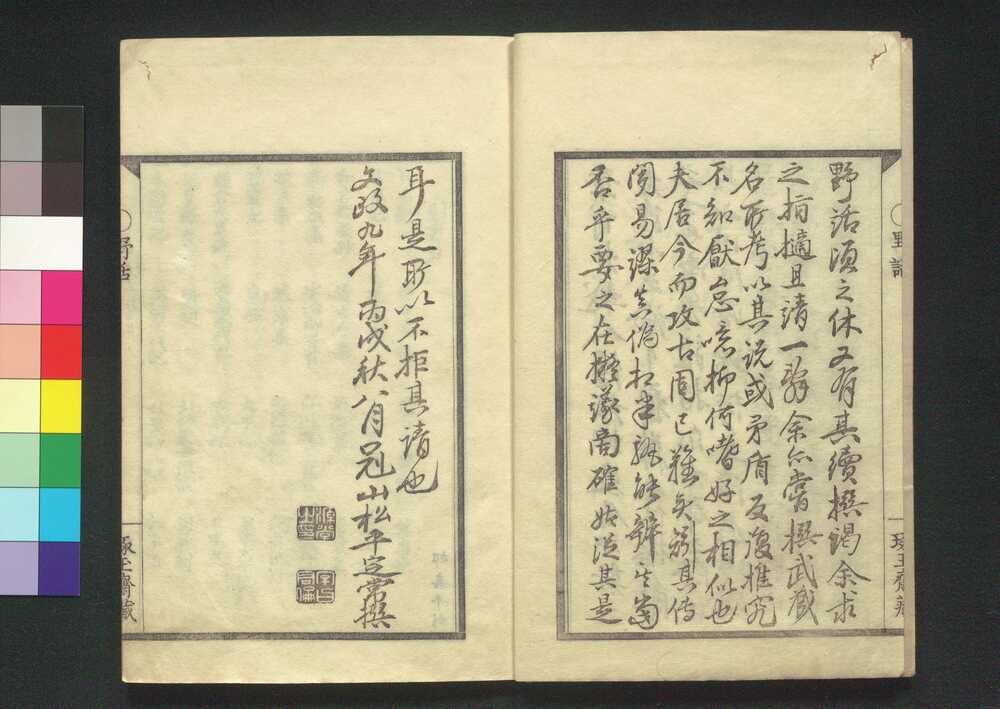 野話須之休又有其續撰謁余求
之指摘且請一辞余亦嘗撰武蔵
名所考以其説或矛盾反復推究
不知厭怠噫抑何嗜好之相似也
夫居今而攷古固已難矣矧其傳
聞易謬真偽相半孰能辨其當
否乎要之在擬議商確姑從其是
耳是所以不拒其請也
文政九年丙戌秋八月冠山松平定常撰
野話
琢玉齋藏
野話
琢玉齋藏